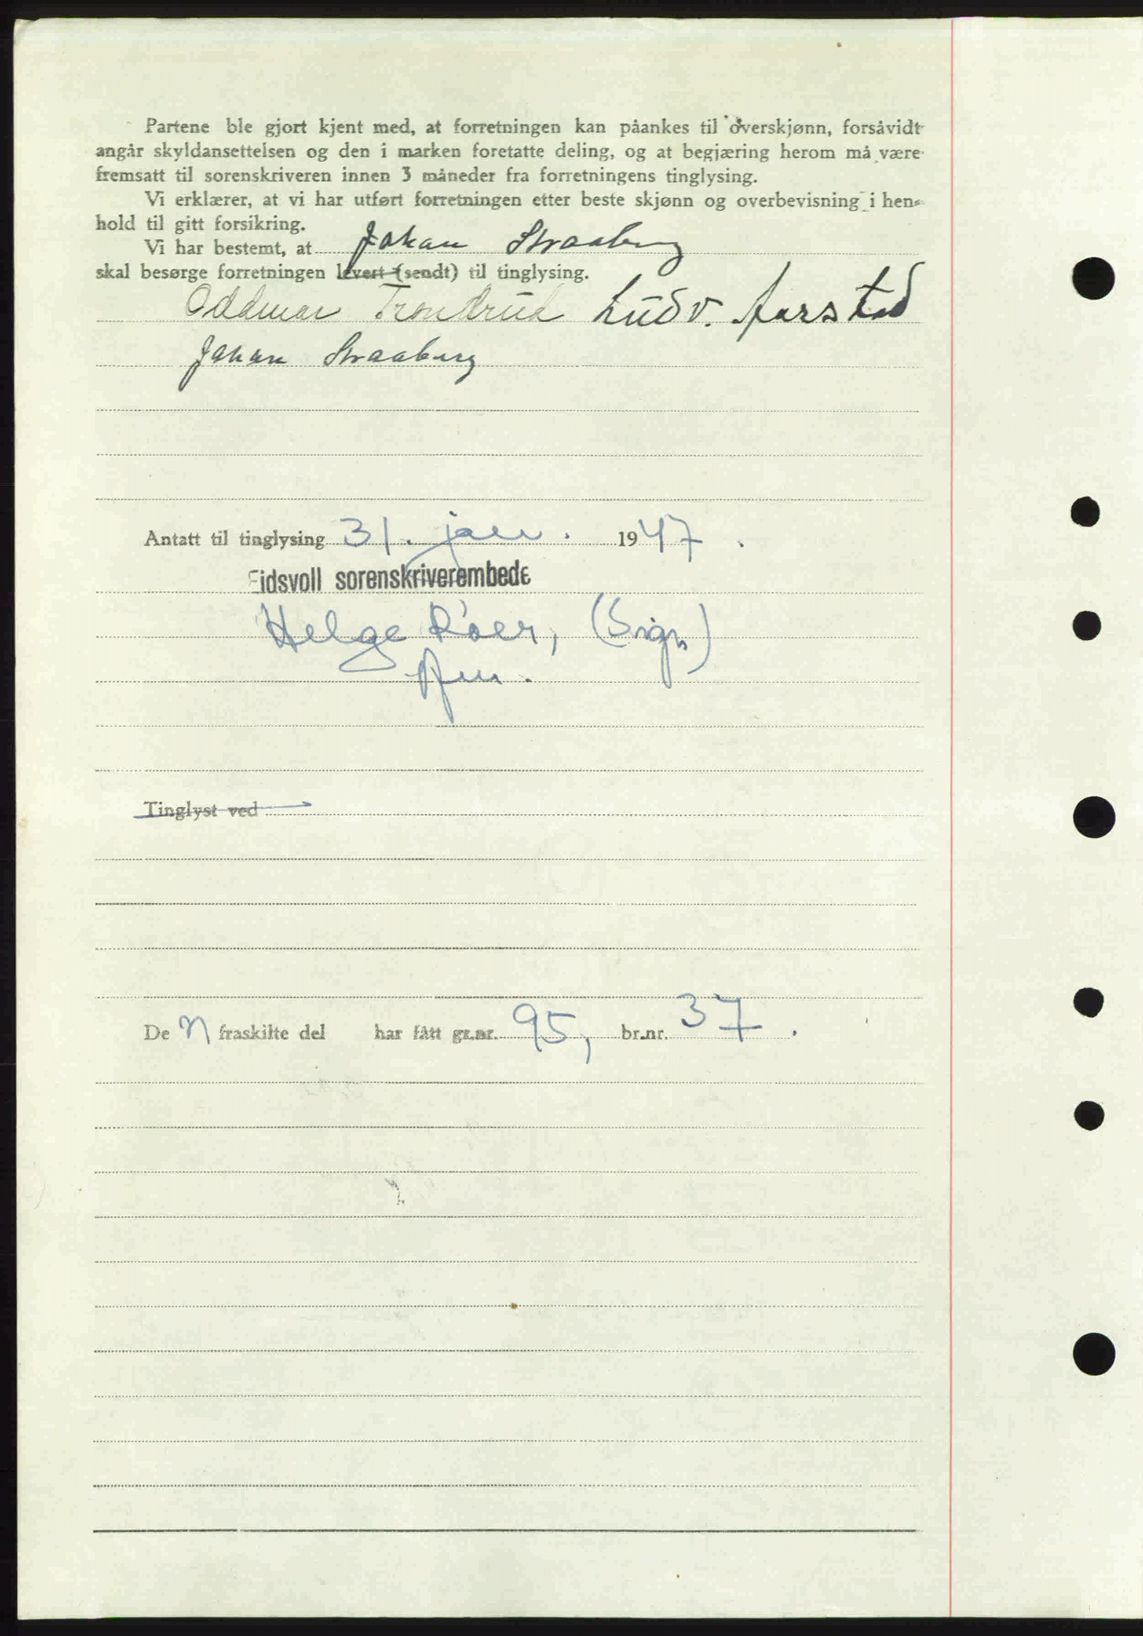 Partene ble gjort kjent med, at forretningen kan påankes til overskjønn, forsåvidt
angår skyldansettelsen og den i marken foretatte deling, og at begjæring herom må være
fremsatt til sorenskriveren innen 3 måneder fra forretningens tinglysing.
Vi erklærer, at vi har utført forretningen etter beste skjønn og overbevisning i hen-
hold til gitt forsikring.
Vi har bestemt, at Johan Straaberg
skal besørge forretningen levert (sendt) til tinglysing.
Oddmar Trondrud Ludv. Aarstad
Johan Straaberg
Antatt til tinglysing 31. jan. 1947.
Eidsvoll sorenskriverembede
Helge Röer, (Sign)
Tinglyst ved
De n fraskilte del har fått gr.nr. 95, br.nr. 37.